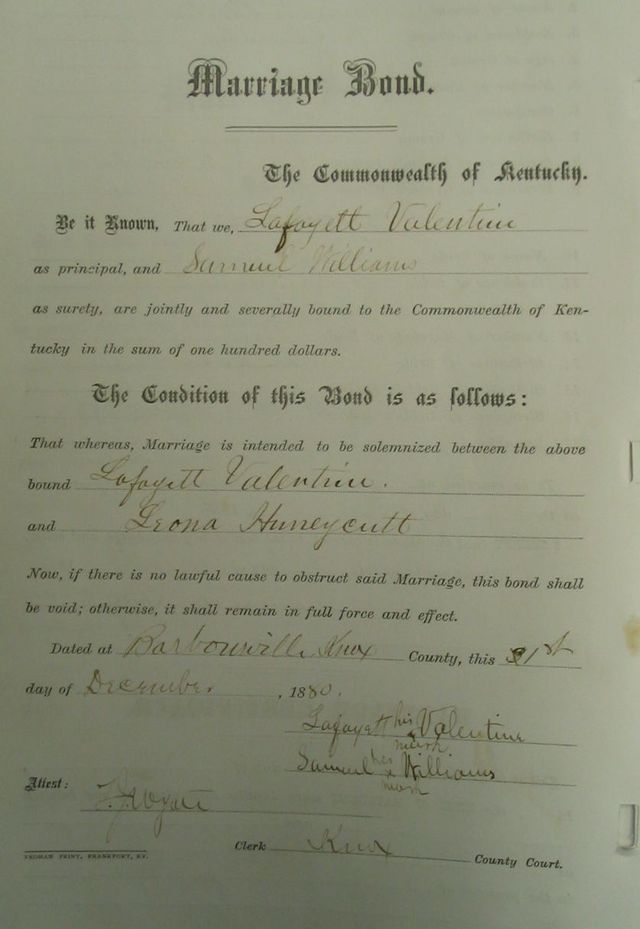 Marriage Bond.
The Commonwealth of Kentucky.
Be it Known, That we, Lafayett Valentine
as principal, and Samuel Williams
as surety, are jointly and severally bound to the Commonwealth of Ken-
tucky in the sum of one hundred dollars.
The Condition of this Bond is as follows:
That whereas, Marriage is intended to be solemnized between the above
bound Lafayett Valentine.
and Leona Huneycutt
Now, if there is no lawful cause to obstruct said Marriage, this bond shall
be void; otherwise, it shall remain in full force and effect.
Dated at Barbourville Knox County, this 1st
day of December, 1880.
Lafayett his x mark Valentine
Samuel his x mark Williams
Attest:
Clerk Knox County Court.
YEOMAN PRINT, FRANKFORT, KY.